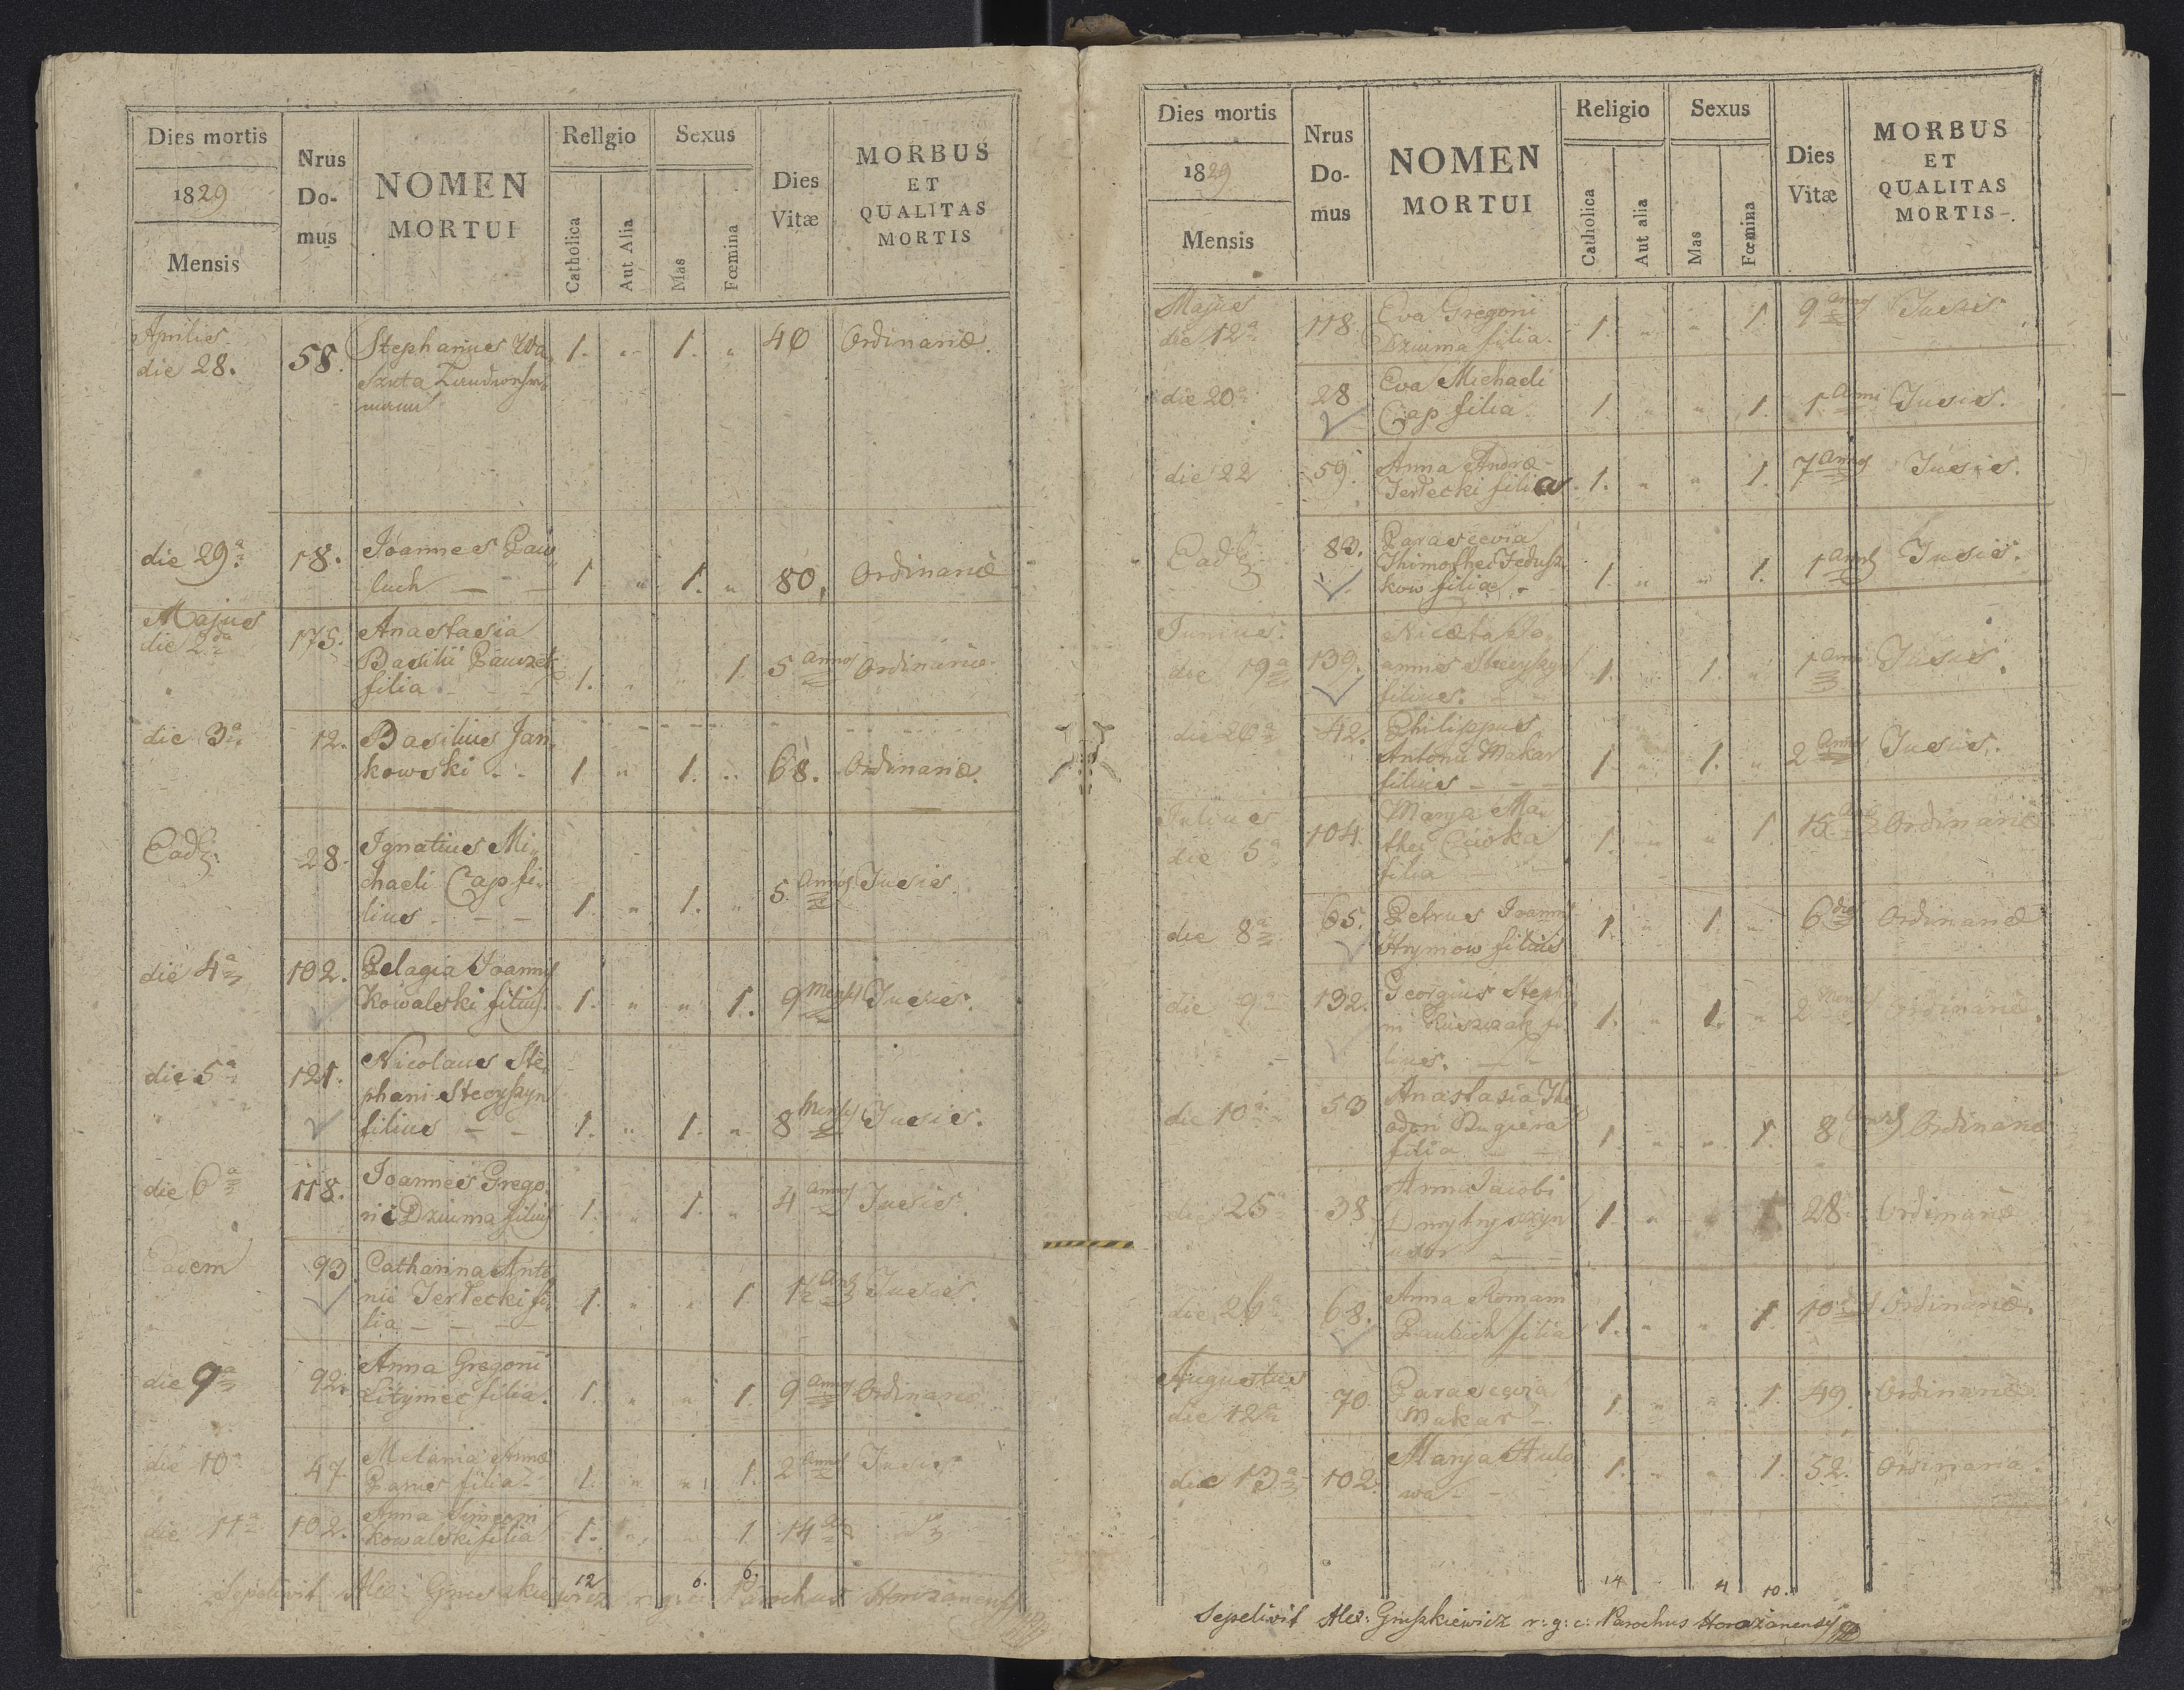 Dies mortis
1829
Mensis
Nrus
Do-
mus
NOMEN
MORTUI
Rellgio
Catholica
Aut Alia
Sexus
Mas
Fœmina
Dies
Vitæ
MORBUS
ET
QUALITAS
MORTIS
Aprilis
die 28. 58. Stephanus 1. „ 1. „ 40 Ordinariæ.
die 29ª 18. Joannes Paw„
luch — 1. „ 1. „ 80, Ordinariæ
Majus
die 2da 175. Anastasia
Basilii
filia - - 1. „ „ 1. 5 annos Ordinariæ.
die 3ª 12. Basilius Jan„
kowski - - 1. „ 1. „ 68. Ordinariæ.
28. Ignatius Mi„
chaeli Cap fi„
lius - - - 1. „ 1. „ 5 Annos Tusis.
die 4ª 102. Pelagia Joannis
Kowalski filius. 1. „ „ 1. 9 Mens Tusis.
die 5ª 121. Nicolaus Ste„
phani
filius - - 1. „ 1. „ 8 Mens Tusis.
die 6ª 118. Joannes Grego„
rii Dziuma filius 1. „ 1. „ 4 annos Tusis.
Eadem 93 Catharina Anto
nii Terlecki fi„
lia - - - 1. „ „ 1. Tusis.
die 9ª 92. Anna Gregorii
Litymec filia. 1. „ „ 1. 9 Annos Ordinariæ
die 10ª 47. Melania Annæ
filia - 1. „ „ 1. 2 Annos Tusis
die 11ª 102. Anna Simeoni
Kowalski filia 1. „ „ 1. 14
12 6. 6.
Sepelivit Alex: r. g. c. Parochus Horożanensis
Dies mortis
1829
Mensis
Nrus
Do-
mus
NOMEN
MORTUI
Religio
Catholica
Aut alia
Sexus
Mas
Fœmina
Dies
Vitæ
MORBUS
ET
QUALITAS
MORTIS
Majus
die 12ª 118. Eva Gregorii
Dziuma filia. 1. „ „ 1. 9 annos Tusis.
die 20ª 28 Eva Michaeli
Cap filia 1. „ „ 1. 1 Anni Tusis.
die 22 59. Anna Andræ
Terlecki filia 1. „ „ 1. 7 Annos Tusis.
83. Parascevia
Thimothei
kow filia. - 1. „ „ 1. 1 Tusis.
Junius.
die 19ª 139. Nicetas Jo„
annis
filius. - - 1. „ 1. „ 1 Anni Tusis.
die 26ª 42. Philippus
Antonii Makar
filius - - - 1. „ 1. „ 2 Annos Tusis.
Julius
die 5ª 104. Marya Ma„
thei
filia - - 1. „ „ 1. 15 Ordinariæ
die 8ª 65. Petrus Joannis
Hrymow filius 1. „ 1. „ 6 dies Ordinariæ
die 9ª 132. Georgius Stepha
ni fi„
lius. - - 1. „ 1. „ 2 Mens Ordinariæ.
die 10ª 53 Anastasia The„
odori Bugiera
filia - - 1. „ „ 1. 8 Ordinariæ
die 25ª 38 Anna Jacobi
Dmytryszyn
uxor - - 1. „ „ 1 28. Ordinariæ
die 26ª 68. Anna Romani
Pauluch filia 1. „ „ 1 10 Ordinariæ.
Augustus
die 12ª 70 Parascevia
Makar - 1. „ „ 1. 49. Ordinariæ.
die 13ª 102. Marya
wa - - 1. „ „ 1. 52. Ordinaria.
14 4 10.
Sepelivit Alex: Gruszkiewicz r: g: c: Parochus Horożanensis